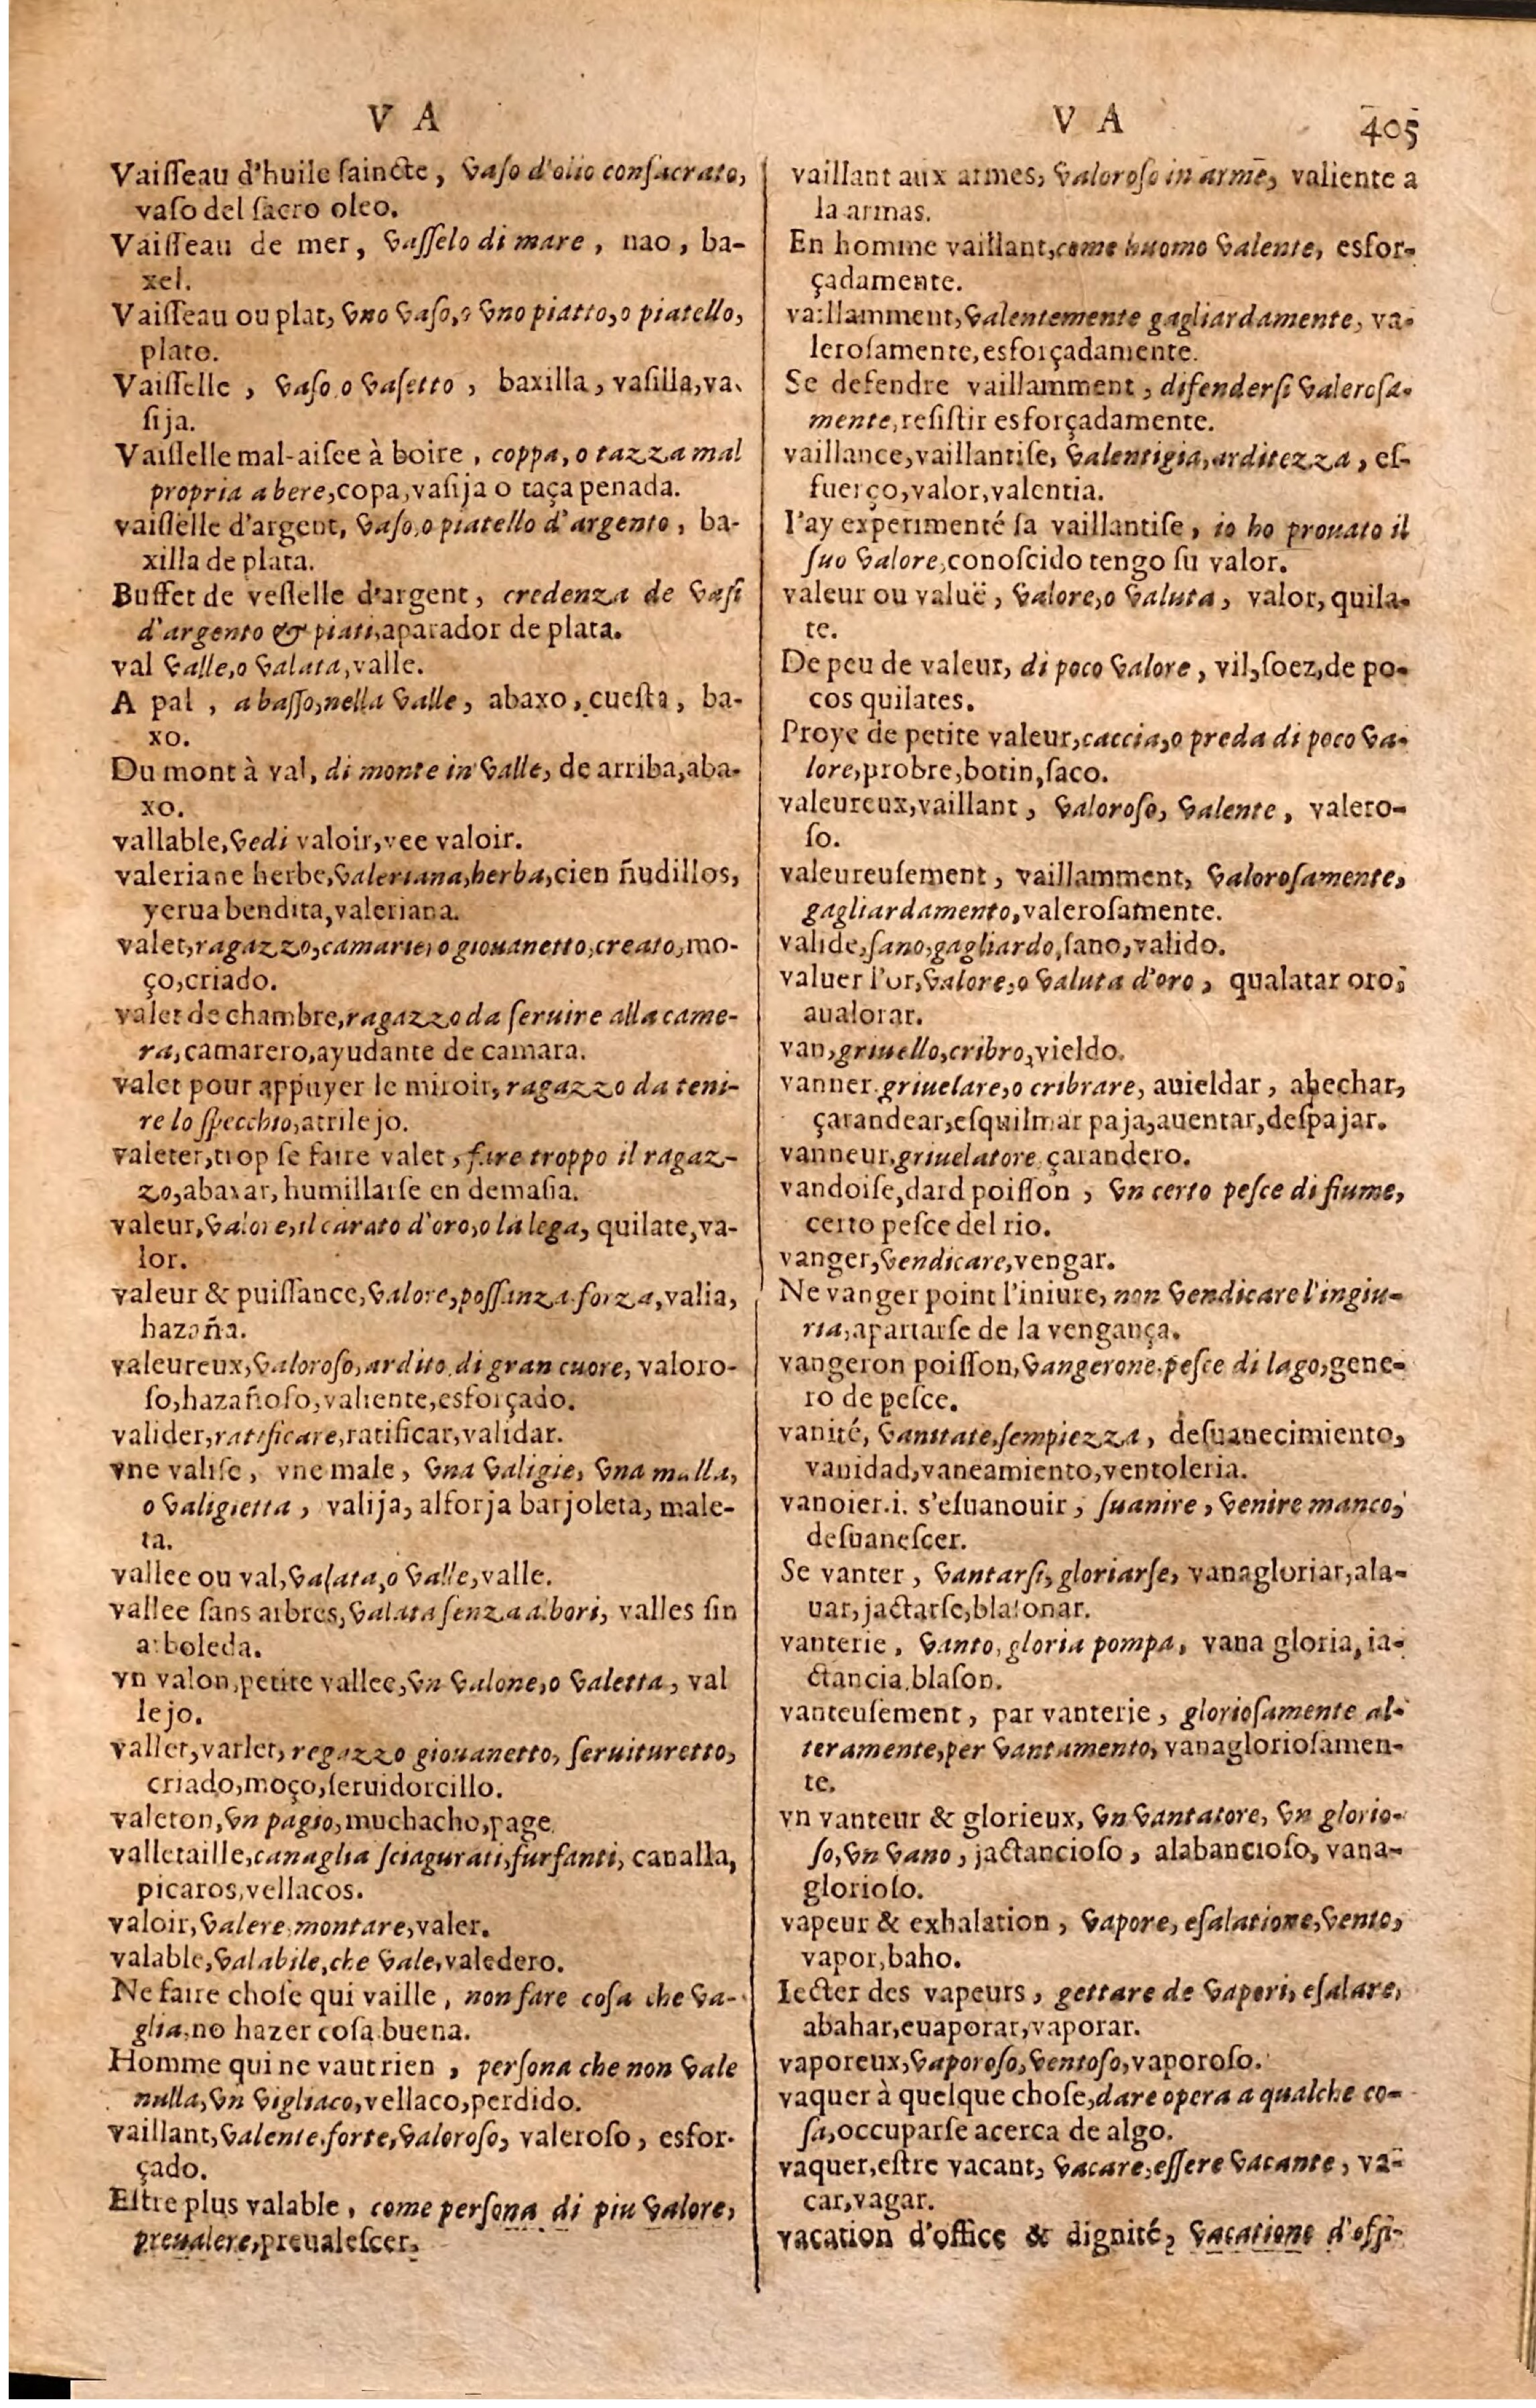 V A
Vaisseau d'huile saincte, vaso d'olio consacrato,
vaso del sacro oleo.
Vaisseau de mer, vasselo di mare, nao, ba-
xel.
Vaisseau ou plat, vno vaso, o vno piatto, o piatello,
plato.
Vaisselle, vaso o vasetto, baxilla, vasilla, va-
sija.
Vaisselle mal-aisee à boire, coppa, o tazza mal
propria a bere, copa, vasija o taça penada.
vaisselle d'argent, vaso, o piatello d'argento, ba-
xilla de plata.
Buffet de veslelle d'argent, credenza de vasi
d'argento & piati, aparador de plata.
val valle, o valata, valle.
A pal, a basso, nella valle, abaxo, cuesta, ba-
xo.
Du mont à val, di monte in valle, de arriba, aba-
xo.
vallable, vedi valoir, vee valoir.
valeriane herbe, valeriana, herba, cien ñudillos,
yerua bendita, valeriana.
valet, ragazzo, camarie, o giouanetto, creato, mo-
ço, criado.
valet de chambre, ragazzo da seruire alla came-
ra, camarero, ayudante de camara.
valet pour appuyer le miroir, ragazzo da teni-
re lo specchio, atrilejo.
valeter, trop se faire valet, fare troppo il ragaz-
zo, abaxar, humillarse en demasia.
valeur, valore, il carato d'oro, o la lega, quilate, va-
lor.
valeur & puissance, valore, possanza forza, valia,
hazaña.
valeureux, valoroso, ardito di gran cuore, valoro-
so, hazañoso, valiente, esforçado.
valider, ratificare, ratificar, validar.
vne valise, vne male, vna valigie, vna malla,
o valigietta, valija, alforja barjoleta, male-
ta.
vallee ou val, valata, o valle, valle.
vallee sans arbres, valata senza albori, valles sin
arboleda.
vn valon, petite vallee, vn valone, o valetta, val
lejo.
vallet, varlet, regazzo giouanetto, seruituretto,
criado, moço, seruidorcillo.
valeton, vn pagio, muchacho, page.
valletaille, canaglia sciagurati, furfanti, canalla,
picaros, vellacos.
valoir, valere montare, valer.
valable, valabile, che vale, valedero.
Ne faire chose qui vaille, non fare cosa che va-
glia, no hazer cosa buena.
Homme qui ne vaut rien, persona che non vale
nulla, vn vigliaco, vellaco, perdido.
vaillant, valente, forte, valoroso, valeroso, esfor-
çado.
Estre plus valable, come persona di piu valore,
preualere, preualescer.
V A 405
vaillant aux armes, valoroso in arme, valiente a
la armas.
En homme vaillant, come huomo valente, esfor-
çadamente.
vaillamment, valentemente gagliardamente, va-
lerosamente, esforçadamente.
Se defendre vaillamment, difendersi valerosa-
mente, resistir esforçadamente.
vaillance, vaillantise, valentigia, arditezza, es-
fuerço, valor, valentia.
I'ay experimenté sa vaillantise, io ho prouato il
suo valore, conoscido tengo su valor.
valeur ou valuë, valore, o valuta, valor, quila-
te.
De peu de valeur, di poco valore, vil, soez, de po-
cos quilates.
Proye de petite valeur, caccia, o preda di poco va-
lore, probre, botin, saco.
valeureux, vaillant, valoroso, valente, valero-
so.
valeureusement, vaillamment, valorosamente,
gagliardamento, valerosamente.
valide, sano, gagliardo, sano, valido.
valuer l'or, valore, o valuta d'oro, qualatar oro,
aualorar.
van, griuello, cribro, vieldo.
vanner, griuelare, o cribrare, auieldar, ahechar,
çarandear, esquilmar paja, auentar, despajar.
vanneur, griuelatore çarandero.
vandoise, dard poisson, vn certo pesce di fiume,
certo pesce del rio.
vanger, vendicare, vengar.
Ne vanger point l'iniure, non vendicare l'ingiu-
ria, apartarse de la vengança.
vangeron poisson, vangerone, pesce di lago, gene-
ro de pesce.
vanité, vanitate, sempiezza, desuanecimiento,
vanidad, vaneamiento, ventoleria.
vanoier .i. s'esuanouir, suanire, venire manco,
desuanescer.
Se vanter, vantarsi, gloriarse, vanagloriar, ala-
uar, jactarse, blasonar.
vanterie, vanto, gloria pompa, vana gloria, ia-
ctancia, blason.
vanteusement, par vanterie, gloriosamente al-
teramente, per vantamento, vanagloriosamen-
te.
vn vanteur & glorieux, vn vantatore, vn glorio-
so, vn vano, jactancioso, alabancioso, vana-
glorioso.
vapeur & exhalation, vapore, esalatione, vento,
vapor, baho.
Iecter des vapeurs, gettare de vapori, esalare,
abahar, euaporar, vaporar.
vaporeux, vaporoso, ventoso, vaporoso.
vaquer à quelque chose, dare opera a qualche co-
sa, occuparse acerca de algo.
vaquer, estre vacant, vacare, essere vacante, va-
car, vagar.
vacation d'office & dignité, vacatione d'offi-